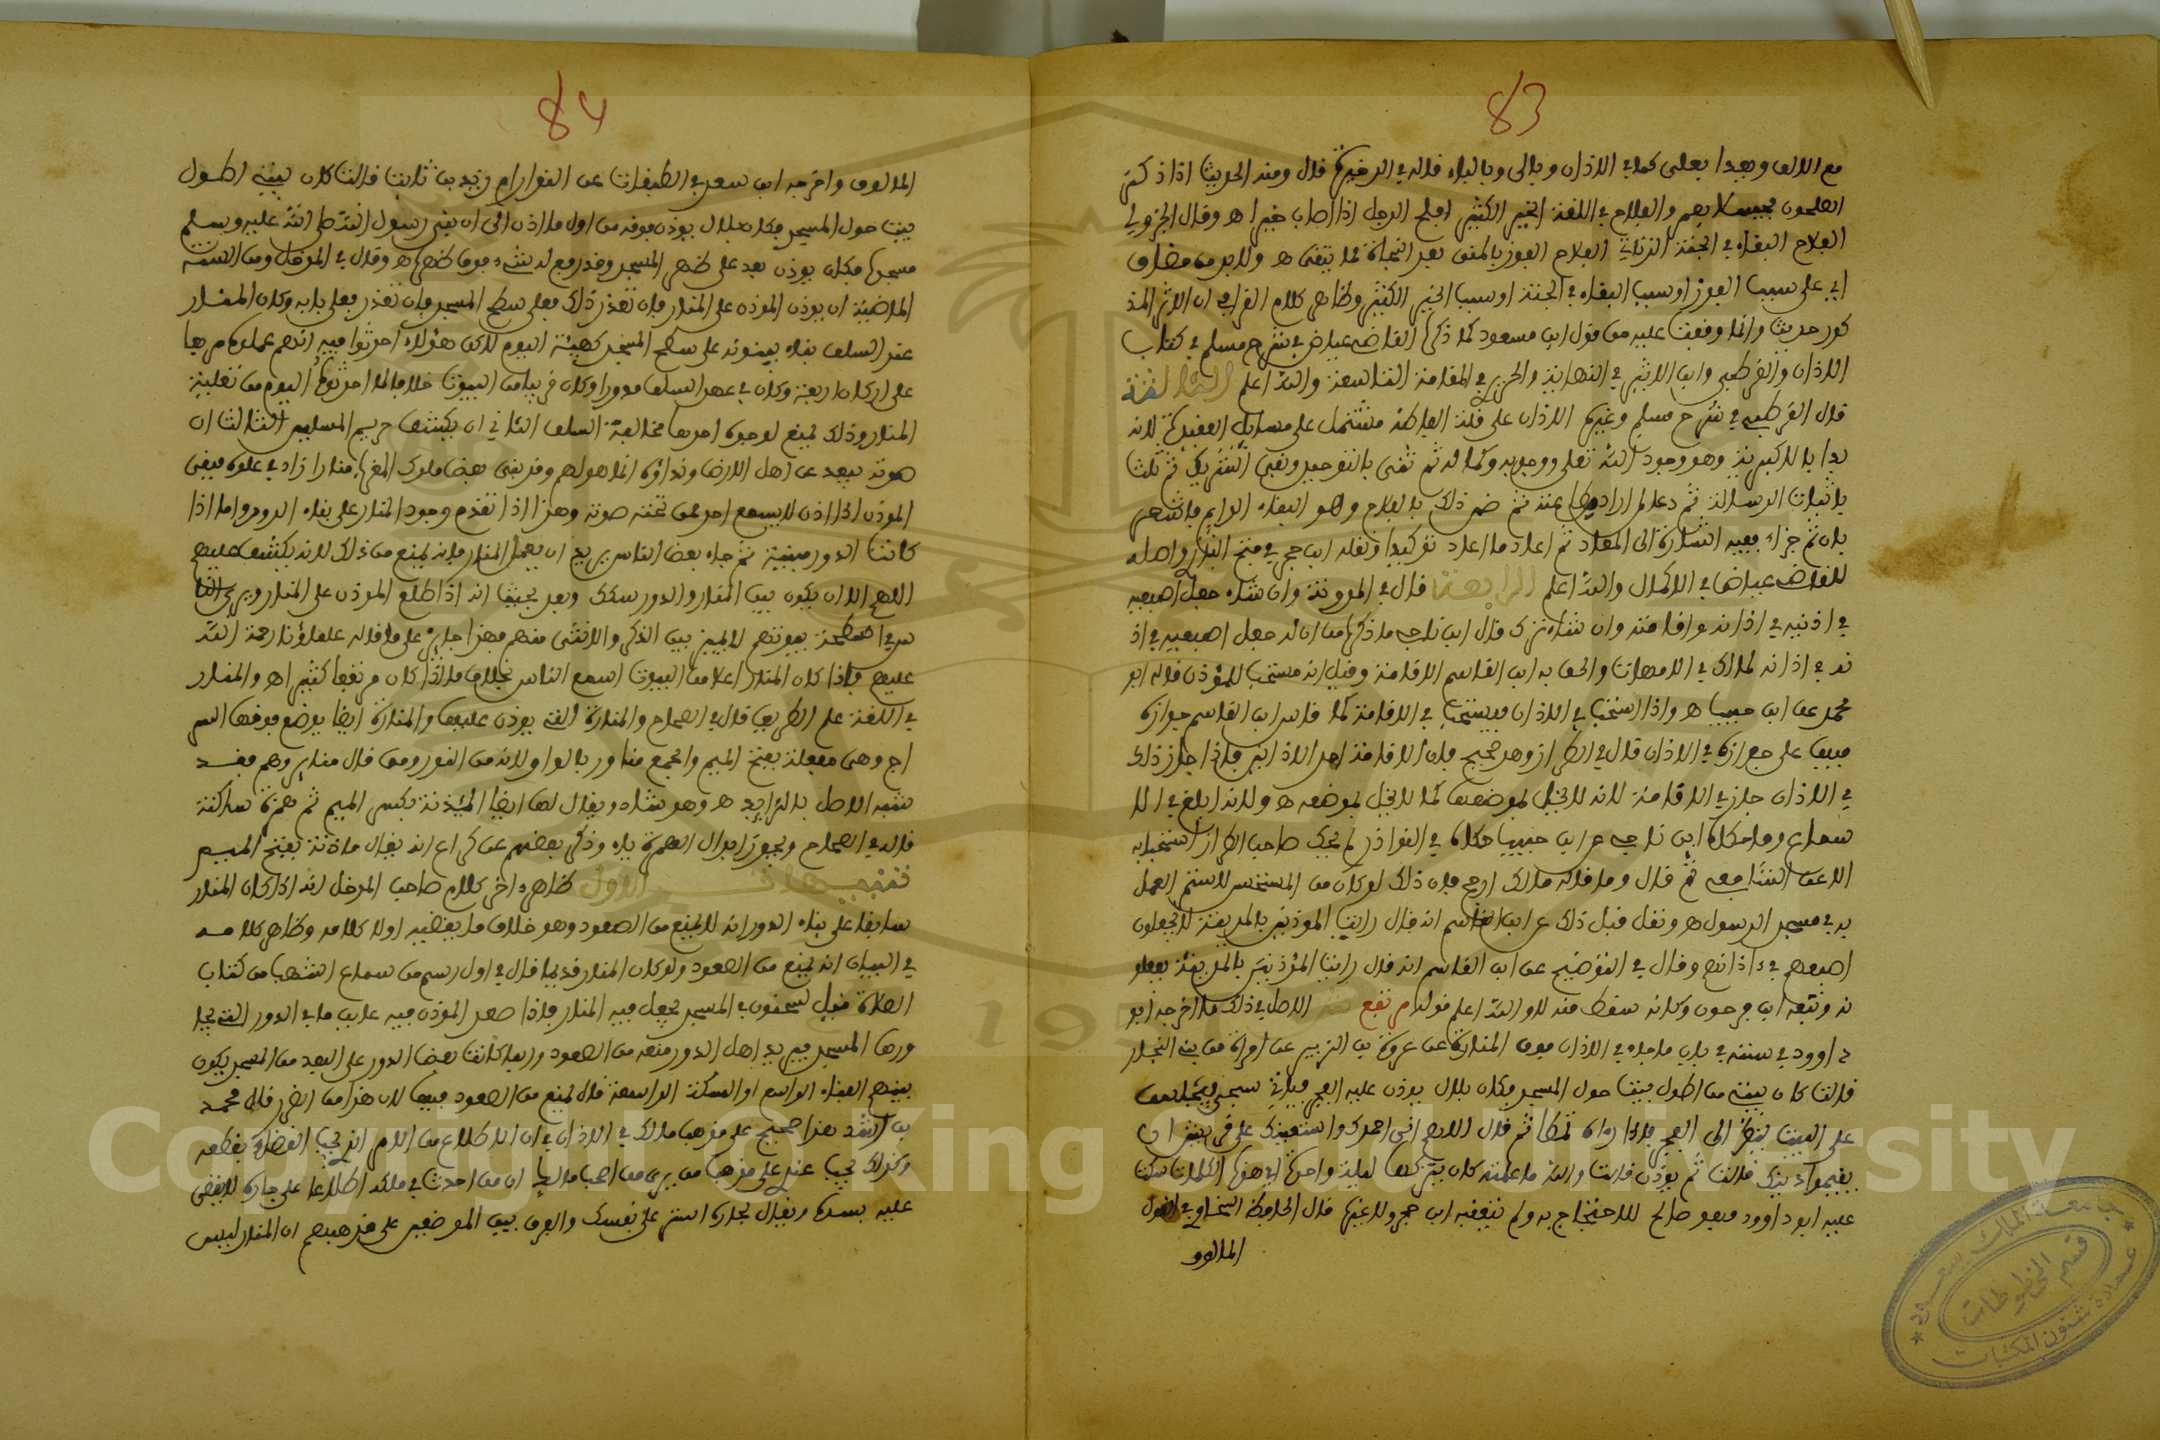 83
مع الالف وهيدا يعلى كما في الاذان وبالى وبالباء قاله في الذخيرة قال ومنه الحديث اذا ذكر
الصلحون بعمر والفلاح في اللغة الخير الكثير افلح الرجل اذا اصاب خيرا اه وقال الجزولي
الفلاح البقاء في الجنة الزناتي الفلاح الفوز بالمنى بعد النجاة مما يتقى اه ولابد من مضاف
اي على سبب الفوز او سبب البقاء في الجنة او سبب الخير الكثير وظاهر كلام القرافي ان الاثر المذ
كور حديث وانما وقفت عليه من قول ابن مسعود كما ذكره القاضي عياض في شرح مسلم في كتاب
الاذان والقرطبي وابن الاثير في النهاية والحريري في المقامة التاسعة والله اعلم الثالثة
قال القرطبي في شرح مسلم وغيره الاذان على قلة الفاظه مشتمل على مسائل العقيدة لانه
بدا بالاكبرية وهو وجود الله تعلى ووجوبه وكماله ثم ثنى بالتوحيد ونفي الشريك ثم ثلث
باثبات الرسالة ثم دعا لما اراد من طاعته ثم ضمن ذلك بالفلاح وهو البقاء الدايم فاشعر
بان ثم جزاء ففيه اشارة الى المعاد ثم اعاد ما اعاد توكيدا ونقله ابن حجر في فتح الباري واصله
للقاضي عياض في الاكمال والله اعلم الرابعة قال في المدونة وان شاء جعل اصبعيه
في اذنيه في اذانه واقامته وان شاء ترك قال ابن ناجي ما ذكره من ان له جعل اصبعيه في اذ
نيه في اذانه لمالك في الامهات والحق به ابن القاسم الاقامة وقيل انه مستحب للمؤذن قاله ابو
محمد عن ابن حبيب اه واذا استحب في الاذان فيستحب في الاقامة كما قاس ابن القاسم جوازه
فيها على جوازه في الاذان قال في الطراز وهو صحيح فان الاقامة احد الاذانين فاذا جاز ذلك
في الاذان جاز في الاقامة لانه لا يخل بموضعها كما لا يخل بموضعه اه ولانه ابلغ في الا
سماع وما حكاه ابن ناجي عن ابن حبيب حكاه في النوادر لم يحك صاحب الطراز استحبابه
الا عن الشافعي ثم قال وما قاله مالك ارجح فان ذلك لو كان من المستحسن لاستمر العمل
به في مسجد الرسول اه ونقل قبل ذلك عن ابن القاسم انه قال رايت المؤذنين بالمدينة لا يجعلون
اصبعهم في اذانهم وقال في التوضيح عن ابن القاسم انه قال رايت المؤذنين بالمدينة يفعلو
نه وتبعه ابن فرحون وكانه سقط منه لا والله اعلم قوله مرتفع الاصل في ذلك ما اخرجه ابو
داوود في سننه في باب ما جاء في الاذان فوق المنارة عن عروة بن الزبير عن امراة من بني النجار
قالت كان بيتي من اطول بيت حول المسجد فكان بلال يوذن عليه الفجر فياتي بسحر فيجلس
على البيت ينظر الى الفجر فاذا راه تمطا ثم قال اللهم اني احمدك واستعينك على قريش ان
يقيموا دينك قالت ثم يوذن قالت والله ما علمته كان تركها ليلة واحدة اي هذه الكلمات سكت
عليه ابو داوود فهو صالح للاحتجاج به ولم يتعقبه ابن حجر ولا غيره قال الحافظ السخاوي في القول
المالوف
84
المالوف واخرجه ابن سعد في الطبقات عن النوار ام زيد بن ثابت قالت كان بيتي اطول
بيت حول المسجد فكان بلال يوذن فوقه من اول ما اذن الى ان بنى رسول الله صلى الله عليه وسلم
مسجده فكان يوذن بعد على ظهر المسجد وقد رفع له شيء فوق ظهره اه وقال في المدخل ومن السنة
الماضية ان يوذن المؤذن على المنار فان تعذر ذلك فعلى سطح المسجد فان تعذر فعلى بابه وكان المنار
عند السلف بناء يبنونه على سطح المسجد كهيئة اليوم لكن هؤلاء احدثوا فيه انهم عملوه مربعا
على اركان اربعة وكان في عهد السلف مدورا وكان قريبا من البيوت خلافا لما احدثوه اليوم من تعلية
المنار وذلك يمنع لوجوه احدها مخالفة السلف الثاني ان يكشف حريم المسلمين الثالث ان
صوته يبعد عن اهل الارض ونداؤه انما هو لهم وقد بنى بعض ملوك المغرب منارا زاد في علوه فبقي
المؤذن اذا اذن لا يسمع احد ممن تحته صوته وهذا اذا تقدم وجود المنار على بناء الدور واما اذا
كانت الدور مبنية ثم جاء بعض الناس يريد ان يعمل المنار فانه يمنع من ذلك لانه يكشف عليهم
اللهم الا ان يكون بين المنار والدور سكك وبعد بحيث انه اذا طلع المؤذن على المنار ويرى الناس
على اسطحة بيوتهم لا يميز بين الذكر والانثى منهم فهذا جايز على ما قاله علماؤنا رحمة الله
عليهم فاذا كان المنار اعلا من البيوت اسمع الناس بخلاف ما اذا كان مرتفعا كثيرا اه والمنار
في اللغة علم الطريق قال في الصحاح والمنارة التي يوذن عليها والمنارة ايضا يوضع فوقها السر
اج وهي مفعلة بفتح الميم والجمع مناور بالواو لانه من النور ومن قال منابر وهم فقد
شبه الاصل بالزايد اه وهو شاذ ويقال لها ايضا المئذنة بكسر الميم ثم همزة ساكنة
قاله في الصحاح ويجوز ابدال الهمزة ياء وذكر بعضهم عن كراع انه يقال ماذنة بفتح الميم
تنبيهات الاول ظاهر اخر كلام صاحب المدخل انه اذا كان المنار
سابقا على بناء الدور انه لا يمنع من الصعود وهو خلاف ما يقتضيه اول كلامه وظاهر كلامه
في البيان انه يمنع من الصعود ولو كان المنار قديما قال في اول رسم من سماع اشهب من كتاب
الصلاة قيل لسحنون في المسجد يجعل فيه المنار فاذا صعد المؤذن فيه عاين ما في الدور التي يجا
ورها المسجد فيريد اهل الدور منعه من الصعود وربما كانت بعض الدور على البعد من المسجد يكون
بينهم الفناء الواسع او السكة الواسعة قال يمنع من الصعود فيها لان هذا من الضرر قال محمد
بن رشد هذا صحيح على مذهب مالك في الاذان في ان الاطلاع من الامر الذي يجب القضاء بقطعه
وكذلك يجب عندي على مذهب من يرى من اصحاب مالك ان من احدث في ملكه اطلاعا على جاره لا يقضى
عليه بسده ويقال لجاره استر على نفسك والفرق بين الموضعين على مذهبهم ان المنار ليس
Copyright © King Saud University
جامعة الملك سعود
قسم المخطوطات
عمادة شئون المكتبات